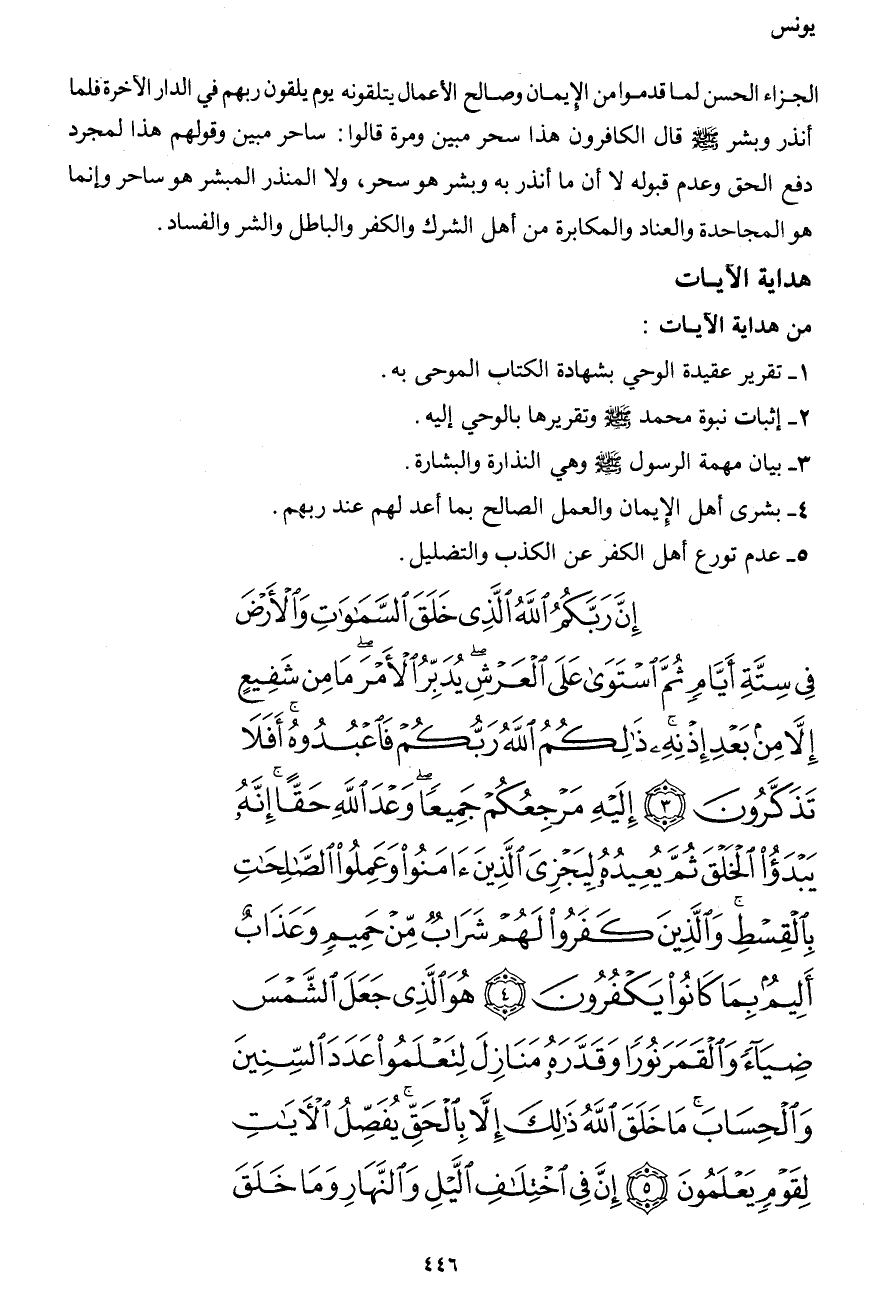 يونس
الجزاء الحسن لما قدموا من الإيمان وصالح الأعمال يتلقونه يوم يلقون ربهم في الدار الآخرة فلما
أنذر وبشر ﷺ قال الكافرون هذا سحر مبين ومرة قالوا: ساحر مبين وقولهم هذا لمجرد
دفع الحق وعدم قبوله لا أن ما أنذر به وبشر هو سحر، ولا المنذر المبشر هو ساحر وإنما
هو المجاحدة والعناد والمكابرة من أهل الشرك والكفر والباطل والشر والفساد.
هداية الآيات
من هداية الآيات :
١ـ تقرير عقيدة الوحي بشهادة الكتاب الموحى به.
٢ـ إثبات نبوة محمد ﷺ وتقريرها بالوحي إليه.
٣ـ بيان مهمة الرسول ﷺ وهي النذارة والبشارة.
٤ـ بشرى أهل الإيمان والعمل الصالح بما أعد لهم عند ربهم.
٥ـ عدم تورع أهل الكفر عن الكذب والتضليل.
إِنَّ رَبَّكُمُ ٱللَّهُ ٱلَّذِى خَلَقَ ٱلسَّمَٰوَٰتِ وَٱلْأَرْضَ
فِى سِتَّةِ أَيَّامٍ ثُمَّ ٱسْتَوَىٰ عَلَى ٱلْعَرْشِ ۖ يُدَبِّرُ ٱلْأَمْرَ ۖ مَا مِن شَفِيعٍ
إِلَّا مِنۢ بَعْدِ إِذْنِهِۦ ۚ ذَٰلِكُمُ ٱللَّهُ رَبُّكُمْ فَٱعْبُدُوهُ ۚ أَفَلَا
تَذَكَّرُونَ ٣ إِلَيْهِ مَرْجِعُكُمْ جَمِيعًا ۖ وَعْدَ ٱللَّهِ حَقًّا ۚ إِنَّهُۥ
يَبْدَؤُا۟ ٱلْخَلْقَ ثُمَّ يُعِيدُهُۥ لِيَجْزِىَ ٱلَّذِينَ ءَامَنُوا۟ وَعَمِلُوا۟ ٱلصَّٰلِحَٰتِ
بِٱلْقِسْطِ ۚ وَٱلَّذِينَ كَفَرُوا۟ لَهُمْ شَرَابٌ مِّنْ حَمِيمٍ وَعَذَابٌ
أَلِيمٌۢ بِمَا كَانُوا۟ يَكْفُرُونَ ٤ هُوَ ٱلَّذِى جَعَلَ ٱلشَّمْسَ
ضِيَآءً وَٱلْقَمَرَ نُورًا وَقَدَّرَهُۥ مَنَازِلَ لِتَعْلَمُوا۟ عَدَدَ ٱلسِّنِينَ
وَٱلْحِسَابَ ۚ مَا خَلَقَ ٱللَّهُ ذَٰلِكَ إِلَّا بِٱلْحَقِّ ۚ يُفَصِّلُ ٱلْءَايَٰتِ
لِقَوْمٍ يَعْلَمُونَ ٥ إِنَّ فِى ٱخْتِلَٰفِ ٱلَّيْلِ وَٱلنَّهَارِ وَمَا خَلَقَ
٤٤٦